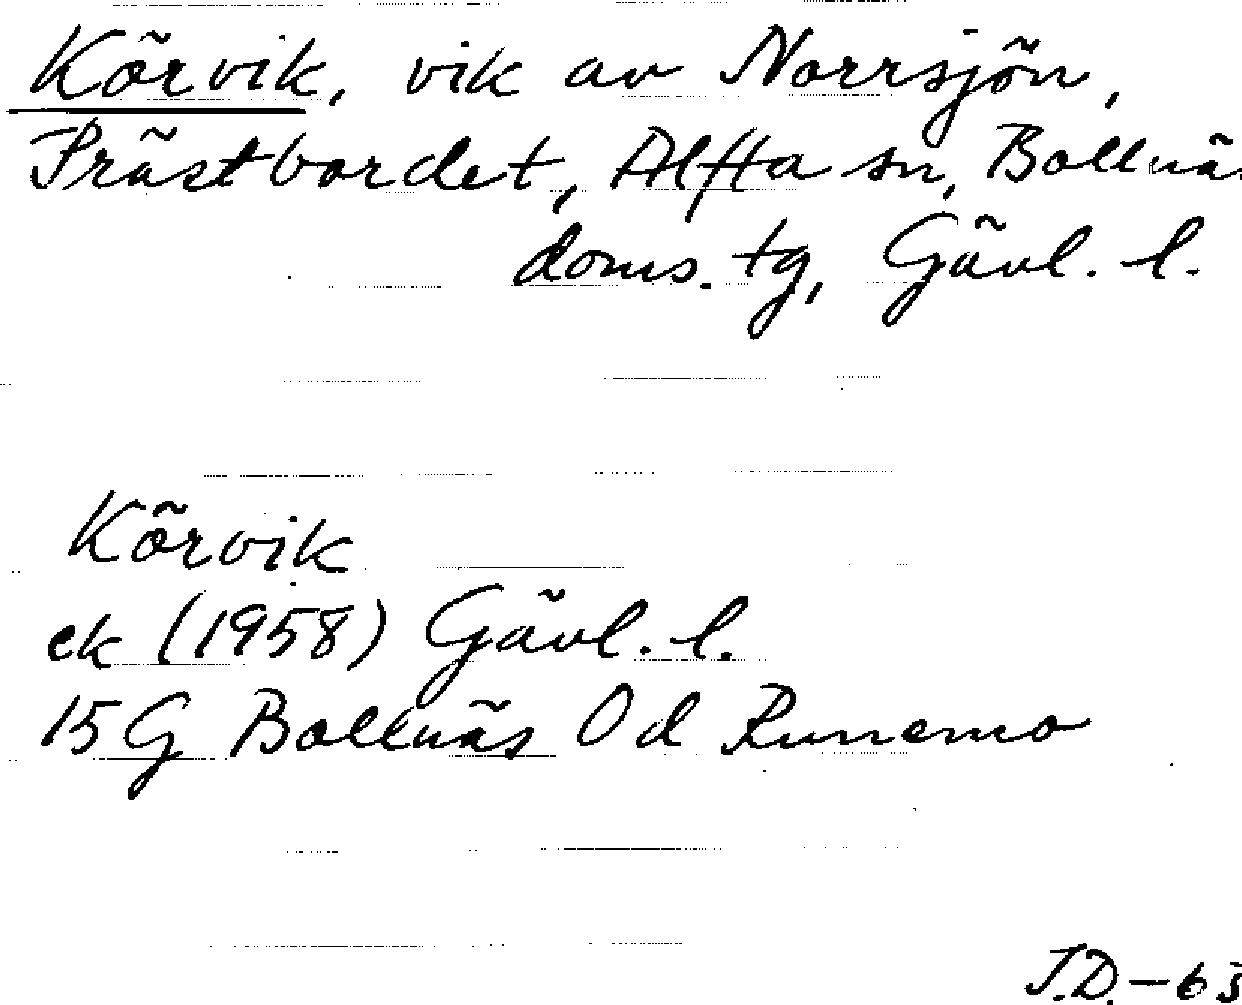 Körvik, vik av Norrsjön,
Prästbordet, Alfta sn, Bollnä
doms. tg, Gävl. l.
Körvik
ek (1958) Gävl. l.
15G Bollnäs 0d Runemo
J.D. - 63